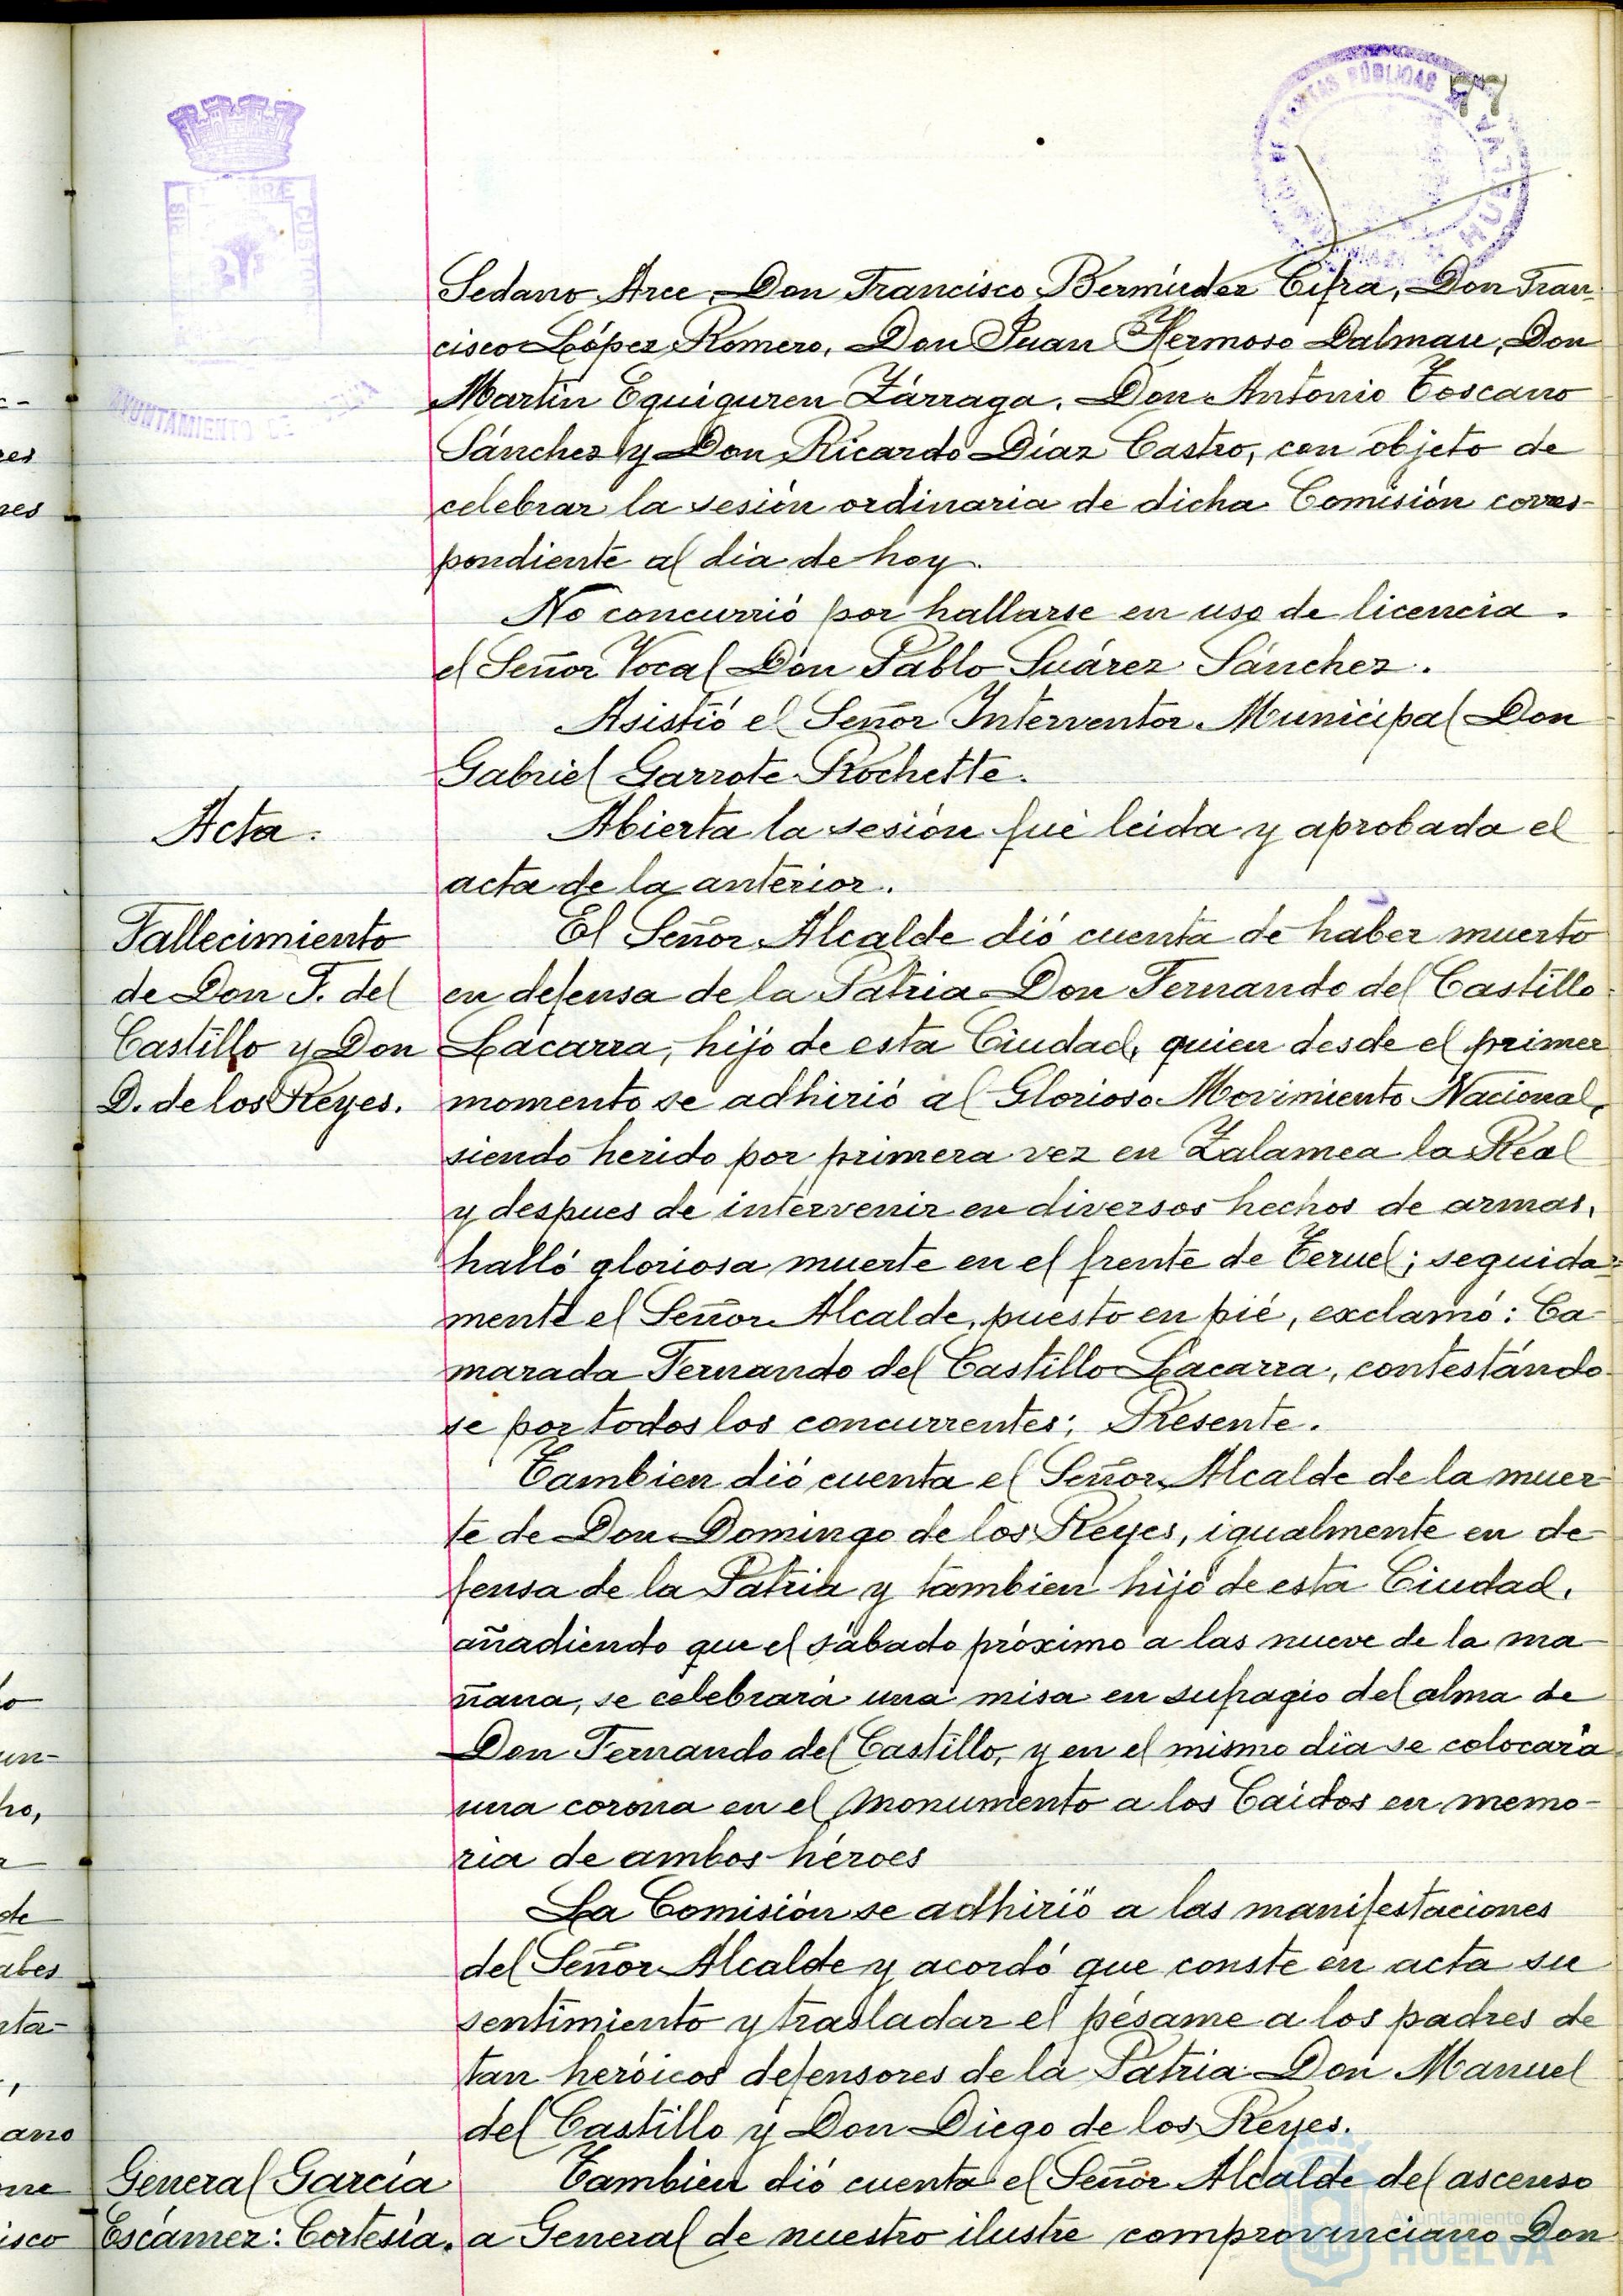 77
Sedano Arce, Don Francisco Bermúdez Cifra, Don Fran-
cisco López Romero, Don Juan Hermoso Dalmau, Don
Martín Eguiguren Zárraga, Don Antonio Toscano
Sánchez y Don Ricardo Díaz Castro, con objeto de
celebrar la sesión ordinaria de dicha Comisión corres-
pondiente al dia de hoy.
No concurrió por hallarse en uso de licencia
el Señor Vocal Don Pablo Suárez Sánchez.
Asistió el Señor Interventor Municipal Don
Gabriel Garrote Rochette.
Acta.
Abierta la sesión fué leida y aprobada el
acta de la anterior.
Fallecimiento
de Don F. del
Castillo y Don
D. de los Reyes.
El Señor Alcalde dió cuenta de haber muerto
en defensa de la Patria Don Fernando del Castillo
Lacarra, hijo de esta Ciudad, quien desde el primer
momento se adhirió al Glorioso Movimiento Nacional,
siendo herido por primera vez en Zalamea la Real
y despues de intervenir en diversos hechos de armas,
halló gloriosa muerte en el frente de Teruel; seguida-
mente el Señor Alcalde, puesto en pié, exclamó: Ca-
marada Fernando del Castillo Lacarra, contestándo-
se por todos los concurrentes; Presente.
Tambien dió cuenta el Señor Alcalde de la muer-
te de Don Domingo de los Reyes, igualmente en de-
fensa de la Patria y tambien hijo de esta Ciudad,
añadiendo que el sábado próximo a las nueve de la ma-
ñana, se celebrará una misa en sufragio del alma de
Don Fernando del Castillo, y en el mismo día se colocará
una corona en el Monumento a los Caidos en memo-
ria de ambos héroes
La Comisión se adhirió a las manifestaciones
del Señor Alcalde y acordó que conste en acta su
sentimiento y trasladar el pésame a los padres de
tan heróicos defensores de la Patria Don Manuel
del Castillo y Don Diego de los Reyes.
General García
Escámez: Cortesía.
Tambien dió cuenta el Señor Alcalde del ascenso
a General de nuestro ilustre comprovinciano Don
AYUNTAMIENTO DE
PÚBLICAS
HUELVA
Ayuntamiento
HUELVA